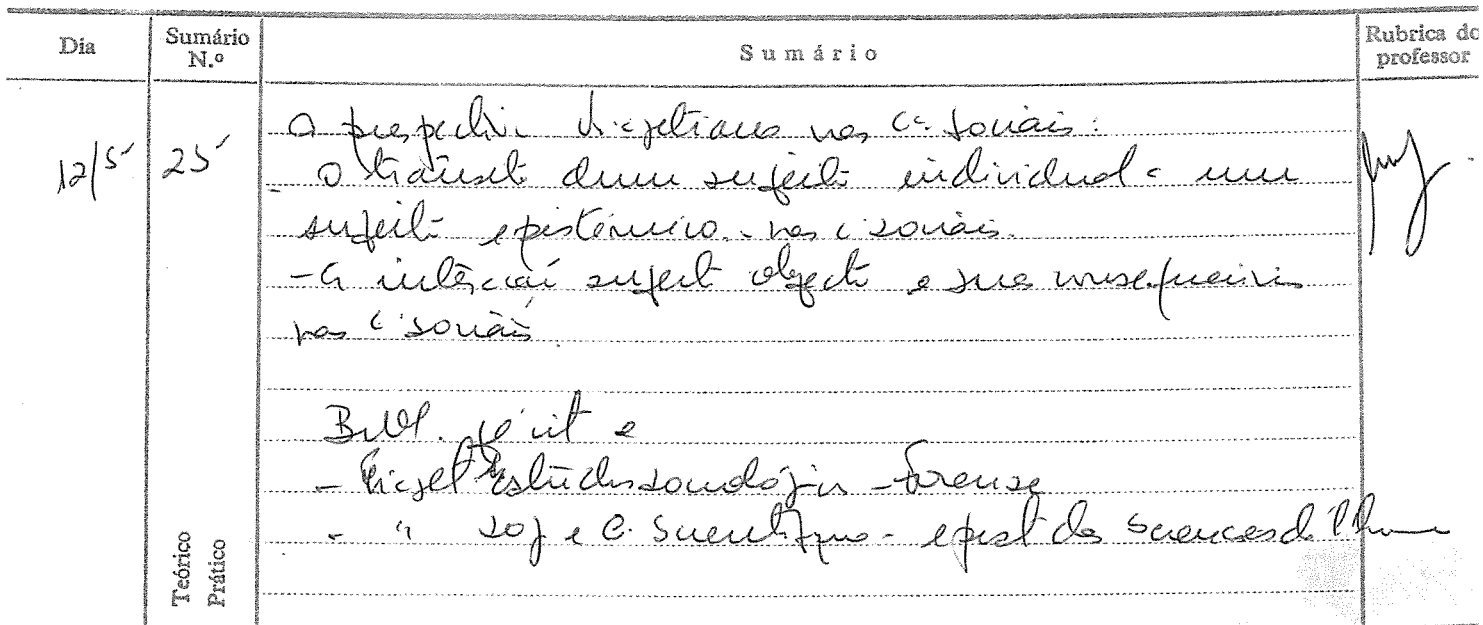 Dia
Sumário N.º
Sumário
Rubrica do professor
12/5
25
A perspectiva Piagetiana nas C. Sociais:
- O trânsito dum sujeito individual a um
sujeito epistémico - nas C. Sociais.
- A interacção sujeito objecto e suas consequências
nas C. Sociais
Bibl. já cit e
- Piaget Estudos sociológicos - Forense
- " e C. Scientifique - epist des Sciences de l'Homme
Teórico
Prático